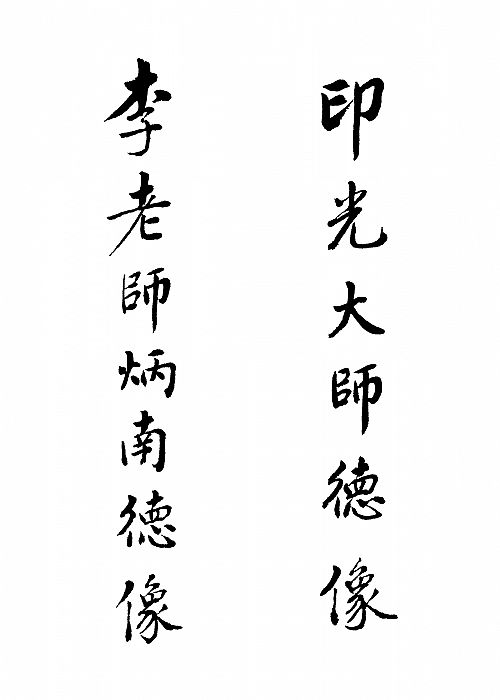 印光大師德像
李老師炳南德像